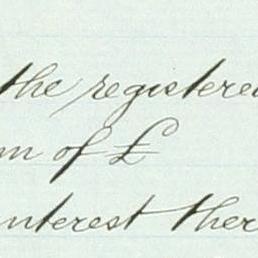 the registered
of £
interest ther